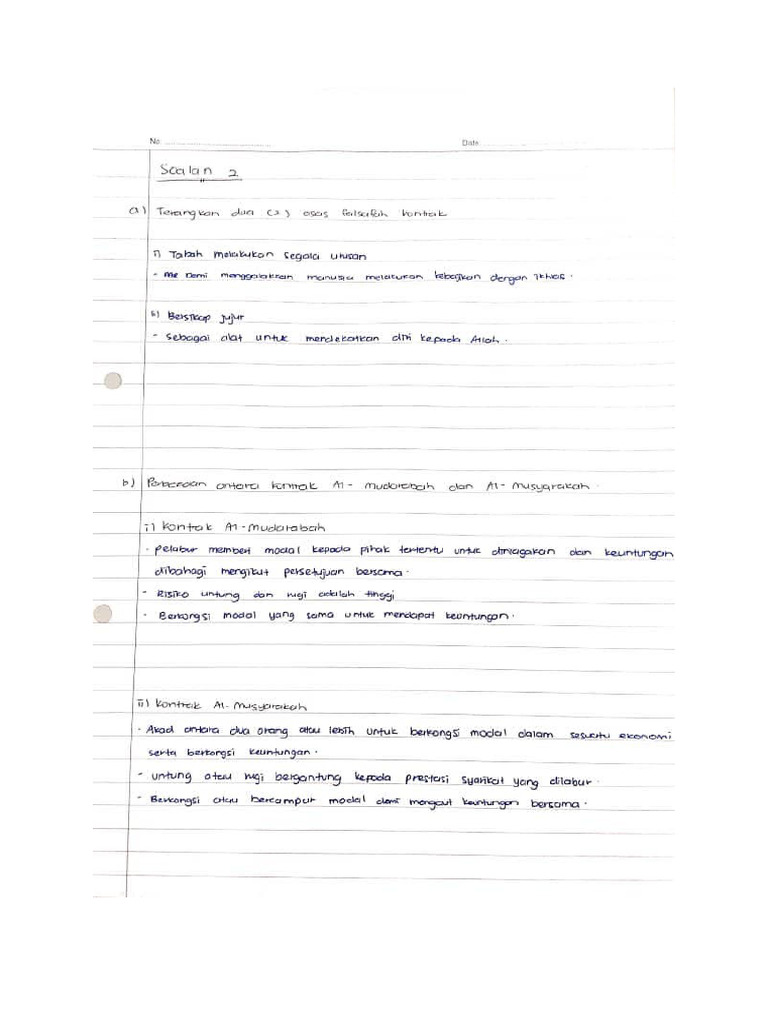 No.
Date
Soalan 2
a) Terangkan dua (2) asas falsafah kontrak
i) Tabah melakukan segala urusan
- Demi menggalakkan manusia melakukan kebajikan dengan ikhlas.
ii) Bersikap jujur
- Sebagai alat untuk mendekatkan diri kepada Allah.
b) Perbezaan antara kontrak Al-mudarabah dan Al-Musyarakah.
i) Kontrak Al-Mudarabah
- Pelabur memberi modal kepada pihak tertentu untuk diniagakan dan keuntungan
dibahagi mengikut persetujuan bersama.
- Risiko untung dan rugi adalah tinggi
- Berkongsi modal yang sama untuk mendapat keuntungan.
ii) Kontrak Al-Musyarakah
- Akad antara dua orang atau lebih untuk berkongsi modal dalam sesuatu ekonomi
serta berkongsi keuntungan.
- Untung atau rugi bergantung kepada prestasi syarikat yang dilabur.
- Berkongsi atau bercampur modal demi mengaut keuntungan bersama.